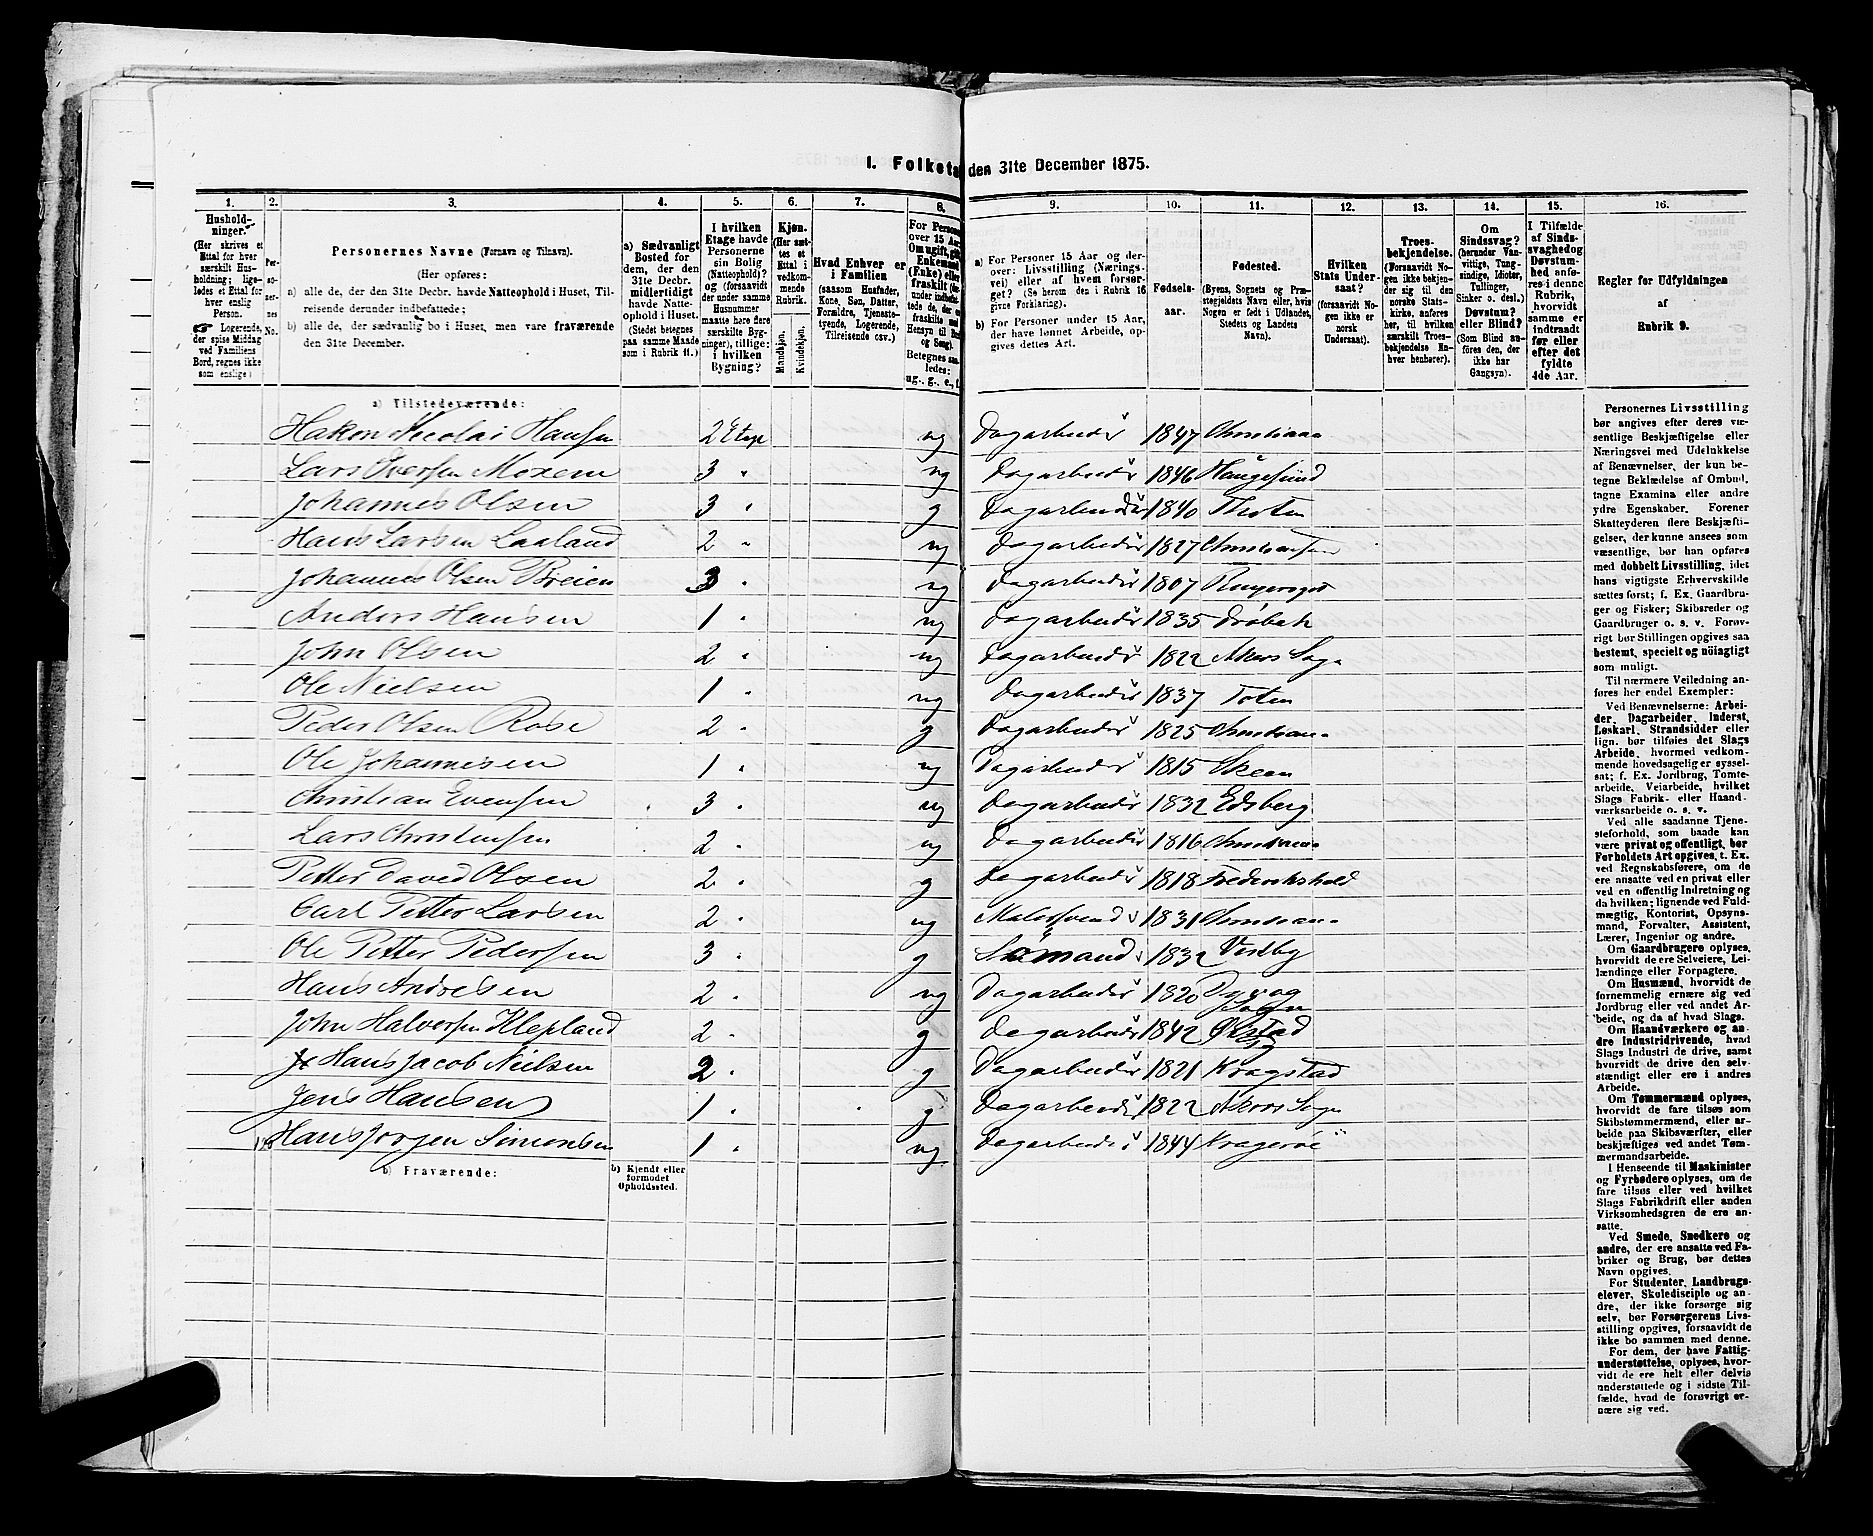 I. Folketa den 31te December 1875.
1. 2. 3. 4. 5. 6. 7. 8. 9. 10. 11. 12. 13. 14. 15. 16.
Hushold-
ninger.
(Her skrives et
Ettal for hver
særskilt Hus-
holdning; lige-
ledes et Ettal for
hver enslig
Person.
☞ Logerende,
der spise Middag
ved Familiens
Bord, regnes ikke
som enslige.)
Personernes Navne (Fornavn og Tilnavn).
(Her opføres:
a) alle de, der den 31te Decbr. havde Natteophold i Huset, Til-
reisende derunder indbefattede;
b) alle de, der sædvanlig bo i Huset, men vare fraværende
den 31te December.
a) Sædvanligt
Bosted for
dem, der den
31te Decbr.
midlertidigt
havde Natte-
ophold i Huset.
(Stedet betegnes
paa samme Maade
som i Rubrik 11.)
I hvilken
Etage havde
Personerne
sin Bolig
(Natteophold)?
og (forsaavidt
der under samme
Husnummer
maatte høre flere
særskilte Byg-
ninger), tillige:
i hvilken
Bygning?
Kjøn.
(Her sæt-
tes et
Ettal i
vedkom-
mende
Rubrik.
Mandkjøn.
Kvindekjøn.
Hvad Enhver er
i Familien
(saasom Husfader,
Kone, Søn, Datter,
Forældre, Tjeneste-
tyende, Logerende,
Tilreisende osv.)
a) For Personer 15 Aar og der-
over: Livsstilling (Nærings-
vei) eller af hvem forsør-
get? (Se herom den i Rubrik 16
givne Forklaring).
b) For Personer under 15 Aar,
der have lønnet Arbeide, op-
gives dettes Art.
Fødsels-
aar.
Fødested.
(Byens, Sognets og Præ-
stegjeldets Navn eller, hvis
Nogen er født i Udlandet,
Stedets og Landets
Navn).
Hvilken
Stats Under-
saat?
(forsaavidt No-
gen ikke er
norsk
Undersaat).
Troes-
bekjendelse.
(Forsaavidt No-
gen ikke bekjen-
der sig til den
norske Stats-
kirke, anføres
her, til hvilken
særskilt Troes-
bekjendelse En-
hver henhører).
Om
Sindssvag?
(herunder Van-
vittige, Tung-
sindige, Idioter,
Tullinger,
Sinker o. desl.)
Døvstum?
eller Blind?
(Som Blind an-
føres den, der
ikke har
Gangsyn).
I Tilfælde
af Sinds-
svaghed og
Døvstum-
hed anfø-
res i denne
Rubrik,
hvorvidt
samme er
indtraadt
før eller
efter det
fyldte
4de Aar.
Regler for Udfyldningen
af
Rubrik 9.
a) Tilstedeværende:
Hakon Nicolai Hansen 2 Etage ug Dagarbeider 1847 Christiania
Lars Iversen Moxem 3 " ug Dagarbeider 1846 Haugesund
Johannes Olsen 3 " g Dagarbeider 1840 Thoten
Hans Larsen Laaland 2 " ug Dagarbeider 1827
Johannes Olsen Breien 3 " ug Dagarbeider 1807
Anders Hansen 1 " ug Dagarbeider 1835 Drøbak
John Olsen 2 " ug Dagarbeider 1822 Akers Sogn
Ole Nielsen 1 " ug Dagarbeider 1837 Toten
Peder Olsen Rose 2 " g Dagarbeider 1825 Christiania
Ole Johannesen 1 " ug Dagarbeider 1815 Skeen
Christian Evensen 3 " ug Dagarbeider 1832 Edsberg
Lars Christensen 2 " ug Dagarbeider 1816 Christiania
Petter David Olsen 2 " g Dagarbeider 1818 Frederikshald
Carl Petter Larsen 2 " ug Malersvend 1831 Christiania
Ole Petter Pedersen 3 " g Sømand 1832 Vestby
Hans Andresen 2 " ug Dagarbeider 1820 Dyvag Sogn
John Halvorsen Klepland 2 " g Dagarbeider 1842
Hans Jacob Nielsen 2 " g Dagarbeider 1821 Kragstad
Jens Hansen 1 " g Dagarbeider 1822 Akers Sogn
Hans Jørgen Simonsen 1 " ug Dagarbeider 1844 Kragerøe
b) Fraværende:
b) Kjendt eller
formodet
Opholdssted.
Personernes Livsstilling
bør angives efter deres væ-
sentlige Beskjæftigelse eller
Næringsvei med Udelukkelse
af Benævnelser, der kun be-
tegne Beklædelse af Ombud,
tagne Examina eller andre
ydre Egenskaber. Forener
Skatteyderen flere Beskjæfti-
gelser, der kunne ansees som
væsentlige, bør han opføres
med dobbelt Livsstilling, idet
hans vigtigste Erhvervskilde
sættes først; f. Ex. Gaardbru-
ger og Fisker; Skibsreder og
Gaardbruger o. s. v. Forøv-
rigt bør Stillingen opgives saa
bestemt, specielt og nøiagtigt
som muligt.
Til nærmere Veiledning an-
føres her endel Exempler:
Ved Benævnelserne: Arbei-
der, Dagarbeider, Inderst,
Løskarl, Strandsidder eller
lign. bør tilføies det Slags
Arbeide, hvormed vedkom-
mende hovedsagelig er syssel-
sat; f. Ex. Jordbrug, Tomte-
arbeide, Veiarbeide, hvilket
Slags Fabrik- eller Haand-
værksarbeide o. s. v.
Ved alle saadanne Tjene-
steforhold, som baade kan
være privat og offentligt, bør
Forholdets Art opgives, t. Ex.
ved Regnskabsførere, om de
ere ansatte ved en privat eller
ved en offentlig Indretning og
da hvilken; lignende ved Fuld-
mægtig, Kontorist, Opsyns-
mand, Forvalter, Assistent,
Lærer, Ingeniør og andre.
Om Gaardbrugere oplyses,
hvorvidt de ere Selveiere, Lei-
lændinge eller Forpagtere.
Om Husmænd, hvorvidt de
fornemmelig ernære sig ved
Jordbrug eller ved andet Ar-
beide, og da af hvad Slags.
Om Haandværkere og an-
dre Industridrivende, hvad
Slags Industri de drive, samt
hvorvidt de drive den selv-
stændigt eller ere i andres
Arbeide.
Om Tømmermænd oplyses,
hvorvidt de fare tilsøs som
Skibstømmermænd, eller ar-
beide paa Skibsværfter, eller
beskjæftiges ved andet Tøm-
mermandsarbeide.
I Henseende til Maskinister
og Fyrbødere oplyses, om de
fare tilsøs eller ved hvilket
Slags Fabrikdrift eller anden
Virksomhedsgren de ere an-
satte.
Ved Smede, Snedkere og
andre, der ere ansatte ved Fa-
briker og Brug, bør dettes
Navn opgives.
For Studenter, Landbrugs-
elever, Skoledisciple og an-
dre, der ikke forsørge sig
selv, bør Forsørgerens Livs-
stilling opgives, forsaavidt de
ikke bo sammen med denne.
For dem, der have Fattig-
understøttelse, oplyses, hvor-
vidt de ere helt eller delvis
understøttede og i sidste Til-
fælde, hvad de forøvrigt er-
nære sig ved.